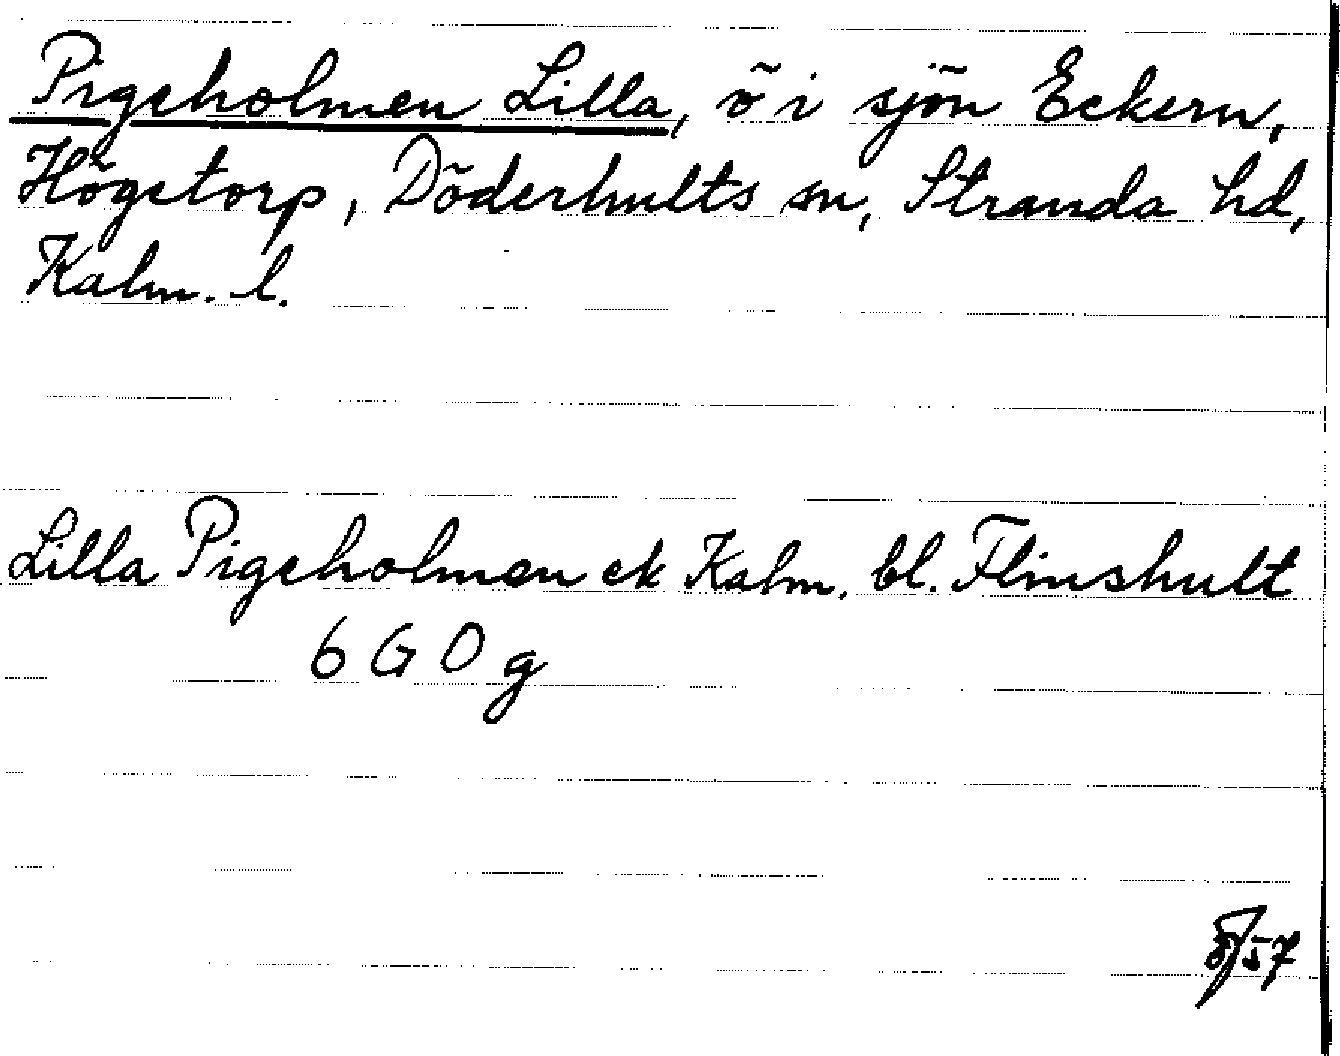 Pigeholmen Lilla, ö i sjön Eckern,
Högetorp, Döderhults sn, Stranda hd,
Kalm. l.
Lilla Pigeholmen ek Kalm. bl. Flinshult
6 G 0 g